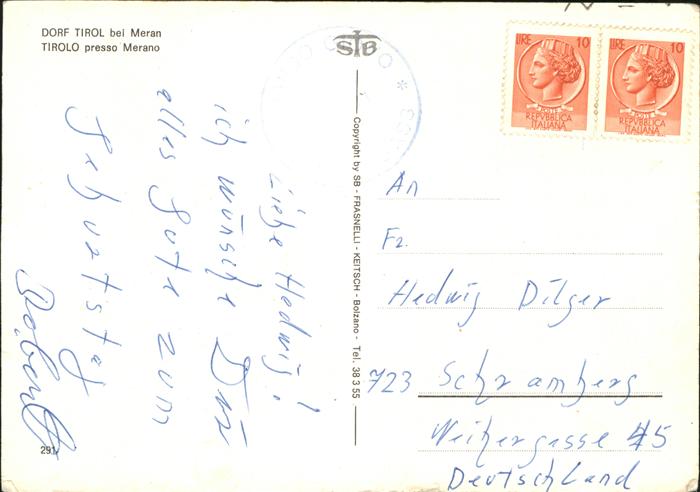 DORF TIROL bei Meran
TIROLO presso Merano
STB
LIRE 10
POSTE
REPVBBLICA
ITALIANA
LIRE 10
POSTE
REPVBBLICA
ITALIANA
Liebe Hedwig!
ich wünsche Dir
alles Gute zum
Geburtstag
Robert
291
Copyright by SB - FRASNELLI - KEITSCH - Bolzano - Tel. 38 3 55
An
Fr.
Hedwig Dilger
723 Schramberg
Weihergasse 45
Deutschland